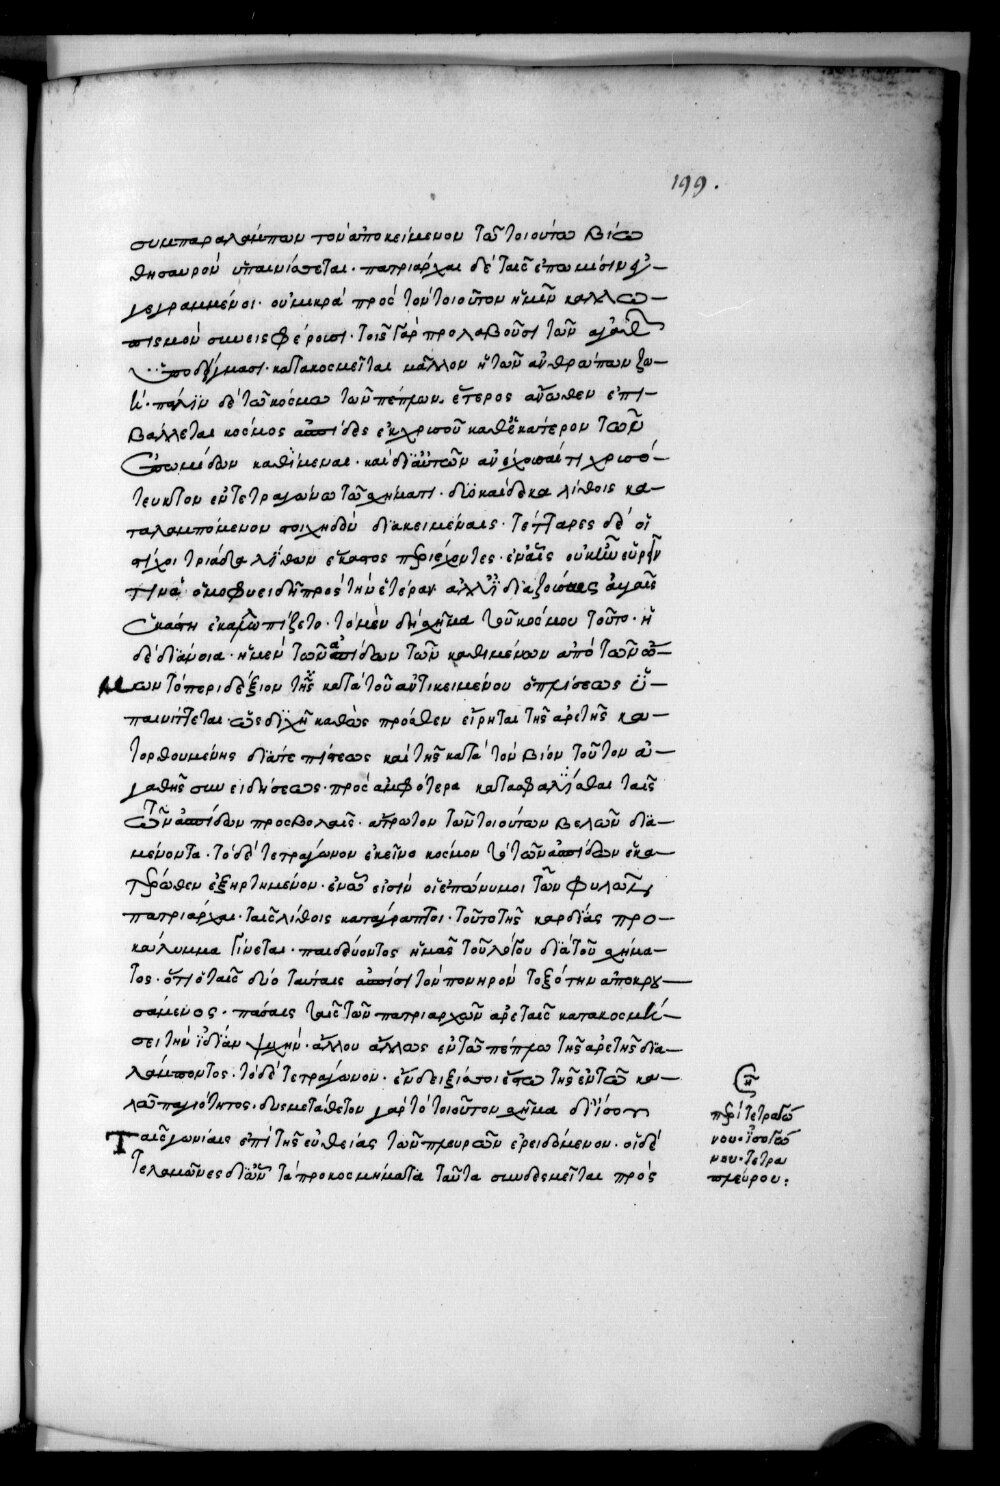 199.
συμπαραλάμπων τὸν ἀποκείμενον τῶ τοιούτω βίω
θησαυρὸν ὑπαινίσσεται. πατριάρχαι δὲ ταῖς ἐπωμίσιν ἐγ-
γεγραμμένοι. οὐ μικρὰ πρὸς τὸν τοιοῦτον ἡμῖν καλλω-
πισμὸν συνεισφέρουσι. τοῖς γὰρ προλαβοῦσι τῶν ἀγαθῶν
ὑποδείγμασι. κατακοσμεῖται μᾶλλον ἡ τῶν ἀνθρώπων ζω-
ή. πάλιν δὲ τῶ κόσμω τῶν πέπλων. ἕτερος ἄνωθεν ἐπι-
βάλλεται κόσμος ἀσπίδες ἐκ χρυσοῦ καθ' ἑκάτερον τῶν
ἐπωμίδων καθίμεναι. καὶ δι' αὐτῶν ἀνέχουσαί τι χρυσό-
τευκτον ἐν τετραγώνω τῶ σχήματι. δυοκαίδεκα λίθοις κα-
ταλαμπόμενον στοιχηδὸν διακειμέναις. τέτταρες δὲ οἱ
στίχοι τριάδα λίθων ἕκαστος περιέχοντες. ἐν αἷς οὐκ ἦν εὑρεῖν
τινα ὁμοφυειδῆ πρὸς τὴν ἑτέραν ἀλλ' ἰδιαζούσαις αὐγαῖς
ἑκάστη ἐκαλλωπίζετο. τὸ μὲν δὴ σχῆμα τοῦ κόσμου τοῦτο. ἡ
δὲ διάνοια. ἡ μὲν τῶν ἀσπίδων τῶν καθιμένων ἀπὸ τῶν ὤ-
μων τὸ περιδέξιον τῆς κατὰ τοῦ ἀντικειμένου ὁπλίσεως ὑ-
παινίττεται. ὡς διχῆ καθὼς πρόσθεν εἴρηται τῆς ἀρετῆς κα-
τορθουμένης διά τε πίστεως καὶ τῆς κατὰ τὸν βίον τοῦτον ἀ-
γαθῆς συνειδήσεως. πρὸς ἀμφότερα κατασφαλίσασθαι ταῖς
τῶν ἀσπίδων προσβολαῖς. ἄτρωτον τῶν τοιούτων βελῶν δια-
μένοντα. τὸ δὲ τετράγωνον ἐκεῖνο κόσμον τὸ τῶν ἀσπίδων ἑκα-
τέρωθεν ἐξηρτημένον. ἐν ὧ εἰσὶν οἱ ἐπώνυμοι τῶν φυλῶν
πατριάρχαι. ταῖς λίθοις κατάγραπτοι. τοῦτο τῆς καρδίας προ-
κάλυμμα γίνεται. παιδεύοντος ἡμᾶς τοῦ λόγου διὰ τοῦ σχήμα-
τος. ὅτι ὁ ταῖς δύο ταύταις ἀσπίσι τὸν πονηρὸν τοξότην ἀποκρου-
σάμενος. πάσαις ταῖς τῶν πατριαρχῶν ἀρεταῖς κατακοσμή-
σει τὴν ἰδίαν ψυχὴν. ἄλλου ἄλλως ἐν τῶ πέπλω τῆς ἀρετῆς δια-
λάμποντος. τὸ δὲ τετράγωνον. ἔνδειξίς σοι ἔστω τῆς ἐν τῶ κα-
λῶ παγιότητος. δυσμετάθετον γὰρ τὸ τοιοῦτον σχῆμα δι' ἴσου
ταῖς γωνίαις ἐπὶ τῆς εὐθείας τῶν πλευρῶν ἐρειδόμενον. οἱ δὲ
τελαμῶνες δι' ὧν τὰ προκοσμήματα ταῦτα συνδεσμεῖται πρὸς
περὶ τετραγώ
νου. ἰσογώ
νου. τετρα
πλεύρου: